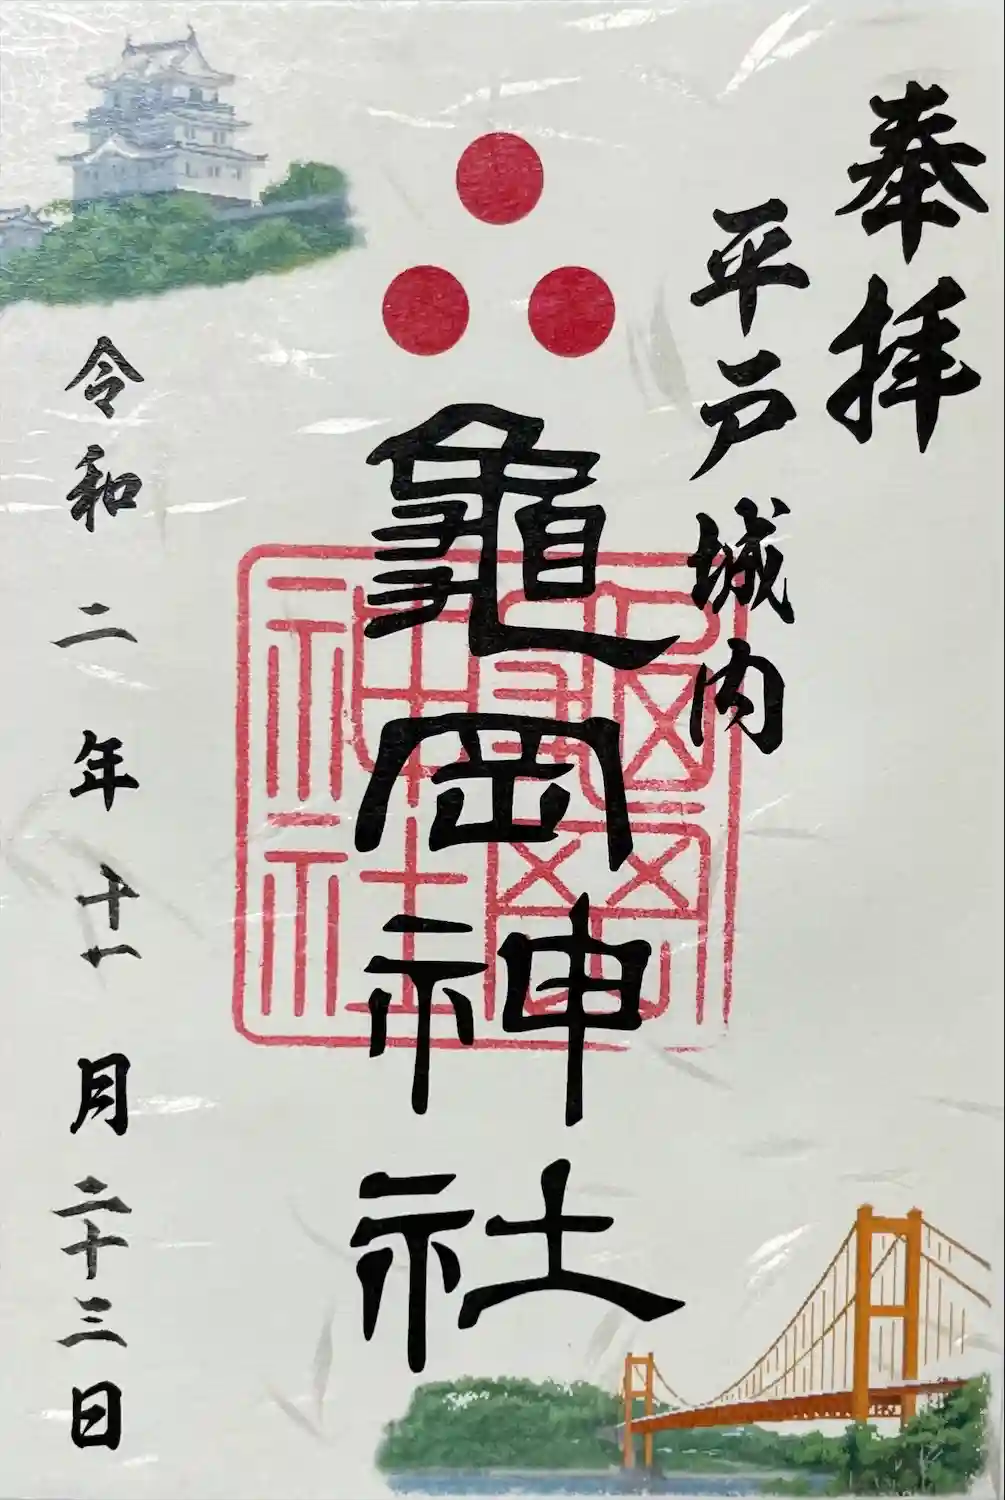 奉拝
平戸城内
龜岡神社
令和二年十一月二十三日